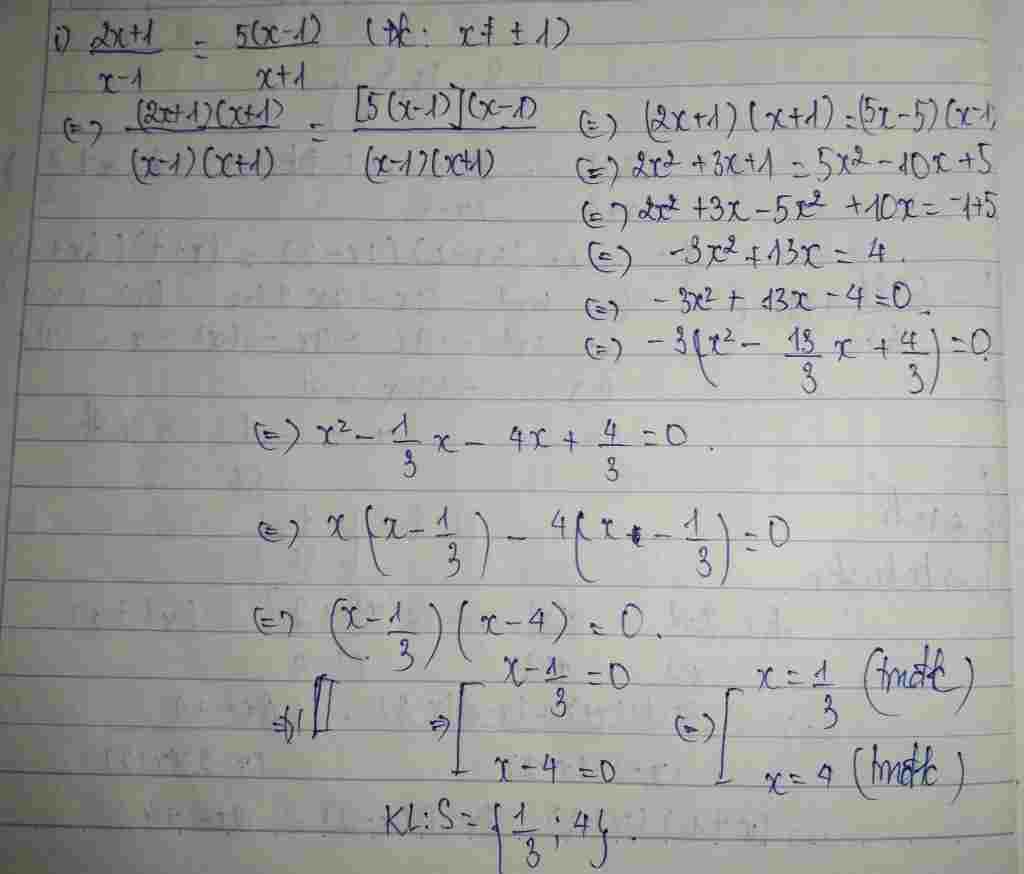 i) (2x+1)/(x-1) = 5(x-1)/(x+1) (đk: x ≠ ± 1)
(=) (2x+1)(x+1)/(x-1)(x+1) = [5(x-1)](x-1)/(x-1)(x+1) (=) (2x+1)(x+1)=(5x-5)(x-1)
(=) 2x² + 3x + 1 = 5x² - 10x + 5
(=) 2x² + 3x - 5x² + 10x = -1+5
(=) -3x² + 13x = 4.
(=) -3x² + 13x - 4 = 0.
(=) -3(x² - 13/3 x + 4/3) = 0.
(=) x² - 1/3 x - 4x + 4/3 = 0.
(=) x(x - 1/3) - 4(x - 1/3) = 0
(=) (x - 1/3)(x - 4) = 0.
=) [ x - 1/3 = 0 (=) [ x = 1/3 (tmđk)
x - 4 = 0 x = 4 (tmđk)
KL: S = {1/3; 4}.